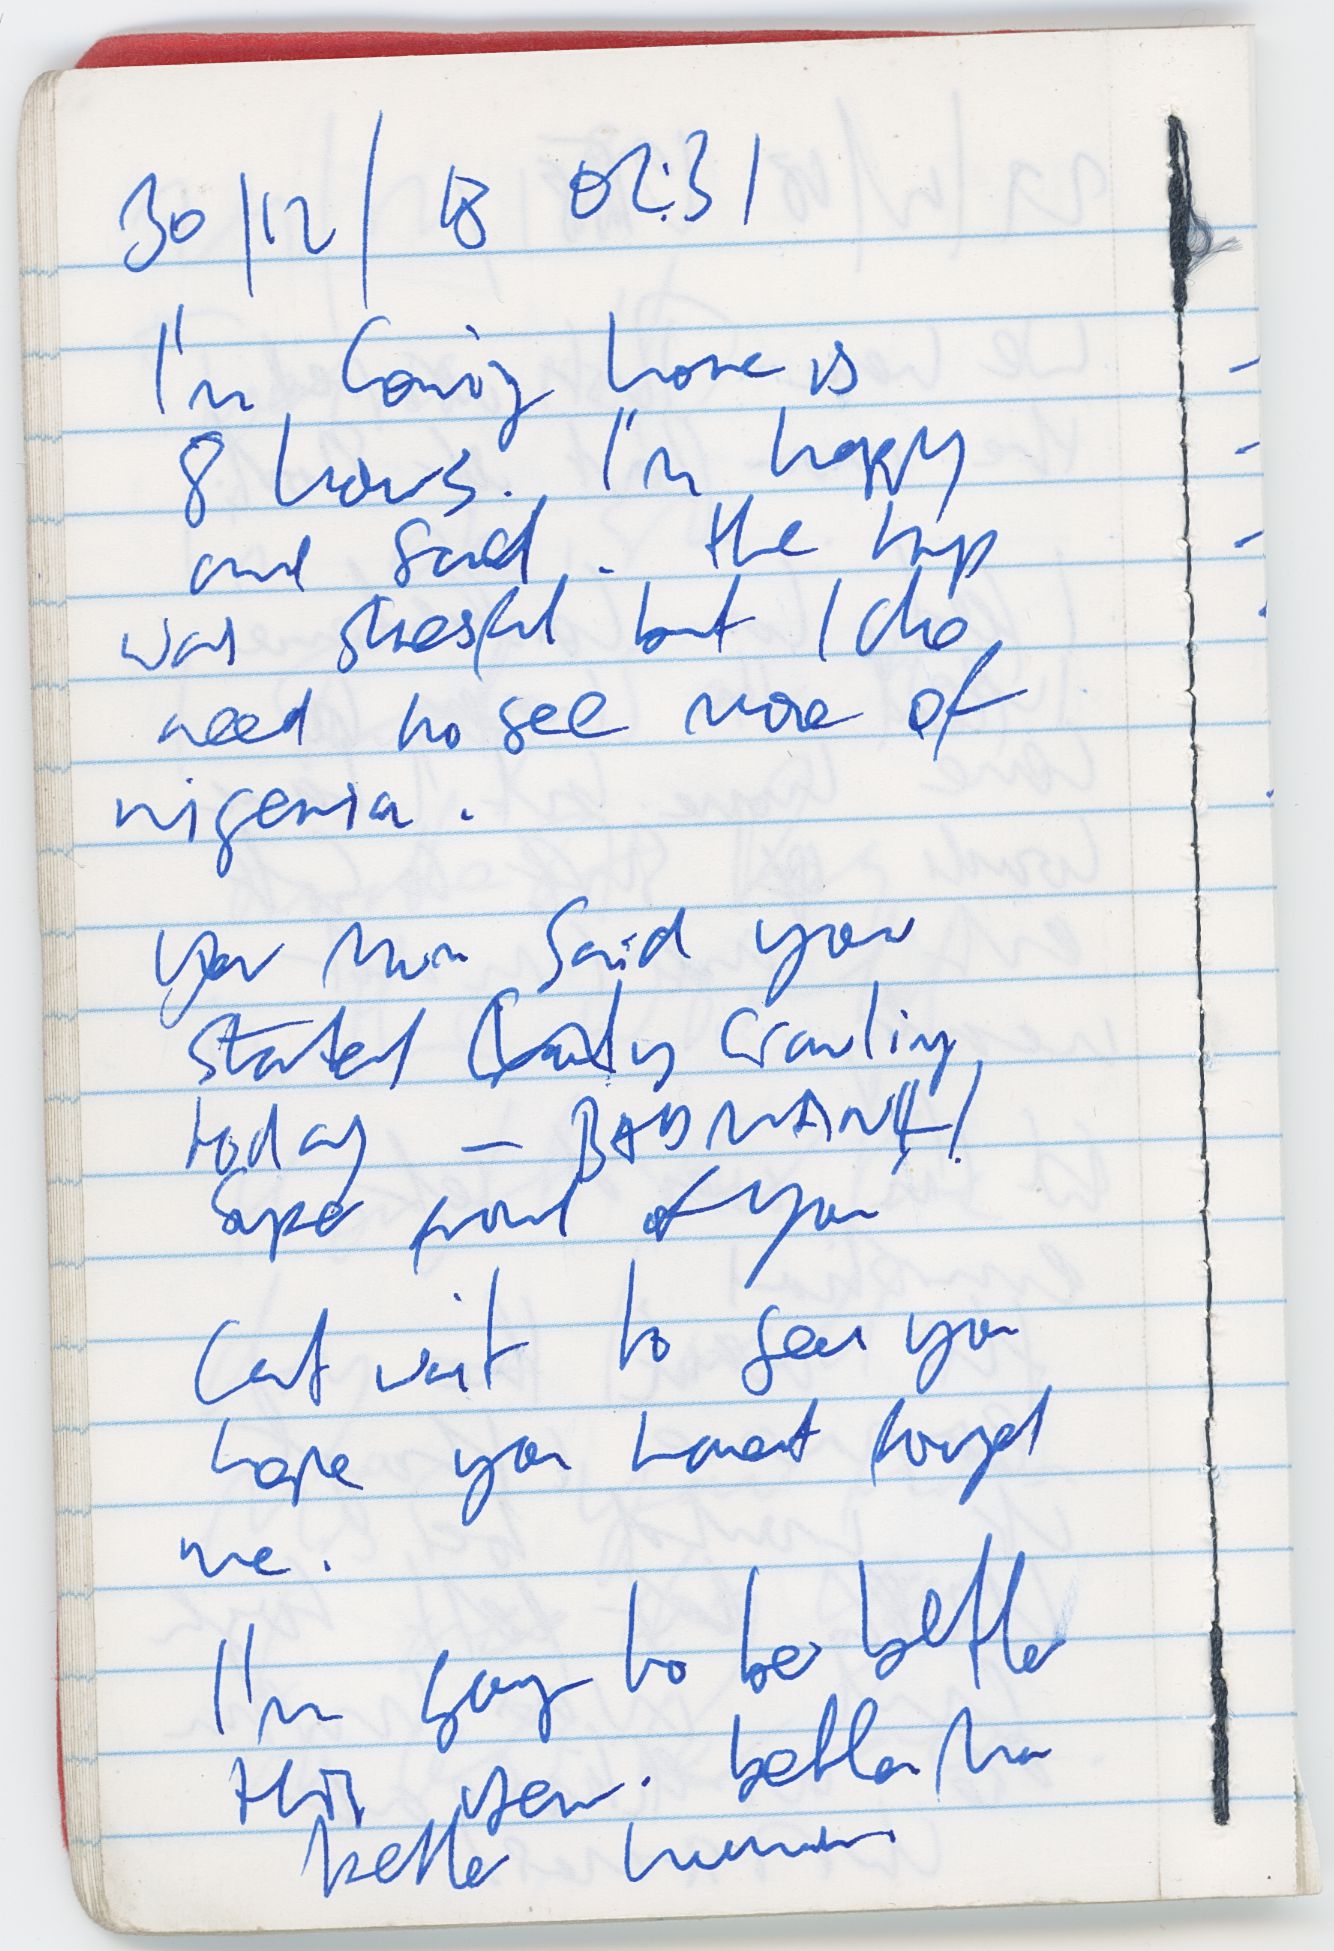 30/12/18 02:31
I'm coming home is
8 hours. I'm happy
and sad. the trip
was stressful but I do
need to see more of
nigeria.
your Mum said you
started crawling
today — BADMAN!
Super proud of you
Cant wait to see you
hope you havent forgot
me.
I'm going to be better
this year. better
better human